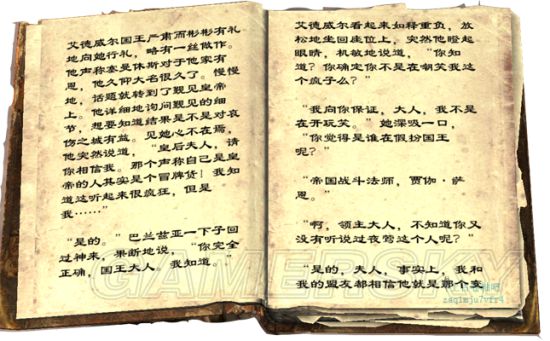 艾德威尔国王严肃而彬彬有礼
地向她行礼，略有一丝做作。
他声称塞曼休斯对于他家有
恩，他久仰大名很久了。慢慢
地，话题就转到了觐见皇帝
上。他详细地询问觐见的细
节，想要知道结果是不是对哀
伤之城有益。见她心不在焉，
他突然说道，“皇后夫人，请
你相信我。那个声称自己是皇
帝的人其实是个冒牌货！我知
道这听起来很疯狂，但是
我……”
“是的。”巴兰兹亚一下子回
过神来，果断地说，“你完全
正确，国王大人。我知道。”
艾德威尔看起来如释重负，放
松地坐回座位上，突然他瞪起
眼睛，机敏地说道，“你知
道？你确定你不是在嘲笑我这
个疯子么？”
“我向你保证，大人，我不是
在开玩笑。”她深吸一口，
“你觉得是谁在假扮国王
呢？”
“帝国战斗法师，贾伽·萨
恩。”
“啊，领主大人，不知道你又
没有听说过夜莺这个人呢？”
“是的，夫人，事实上，我和
我的盟友都相信他就是那个变
GAMERSKY
zaqimju7vfr4